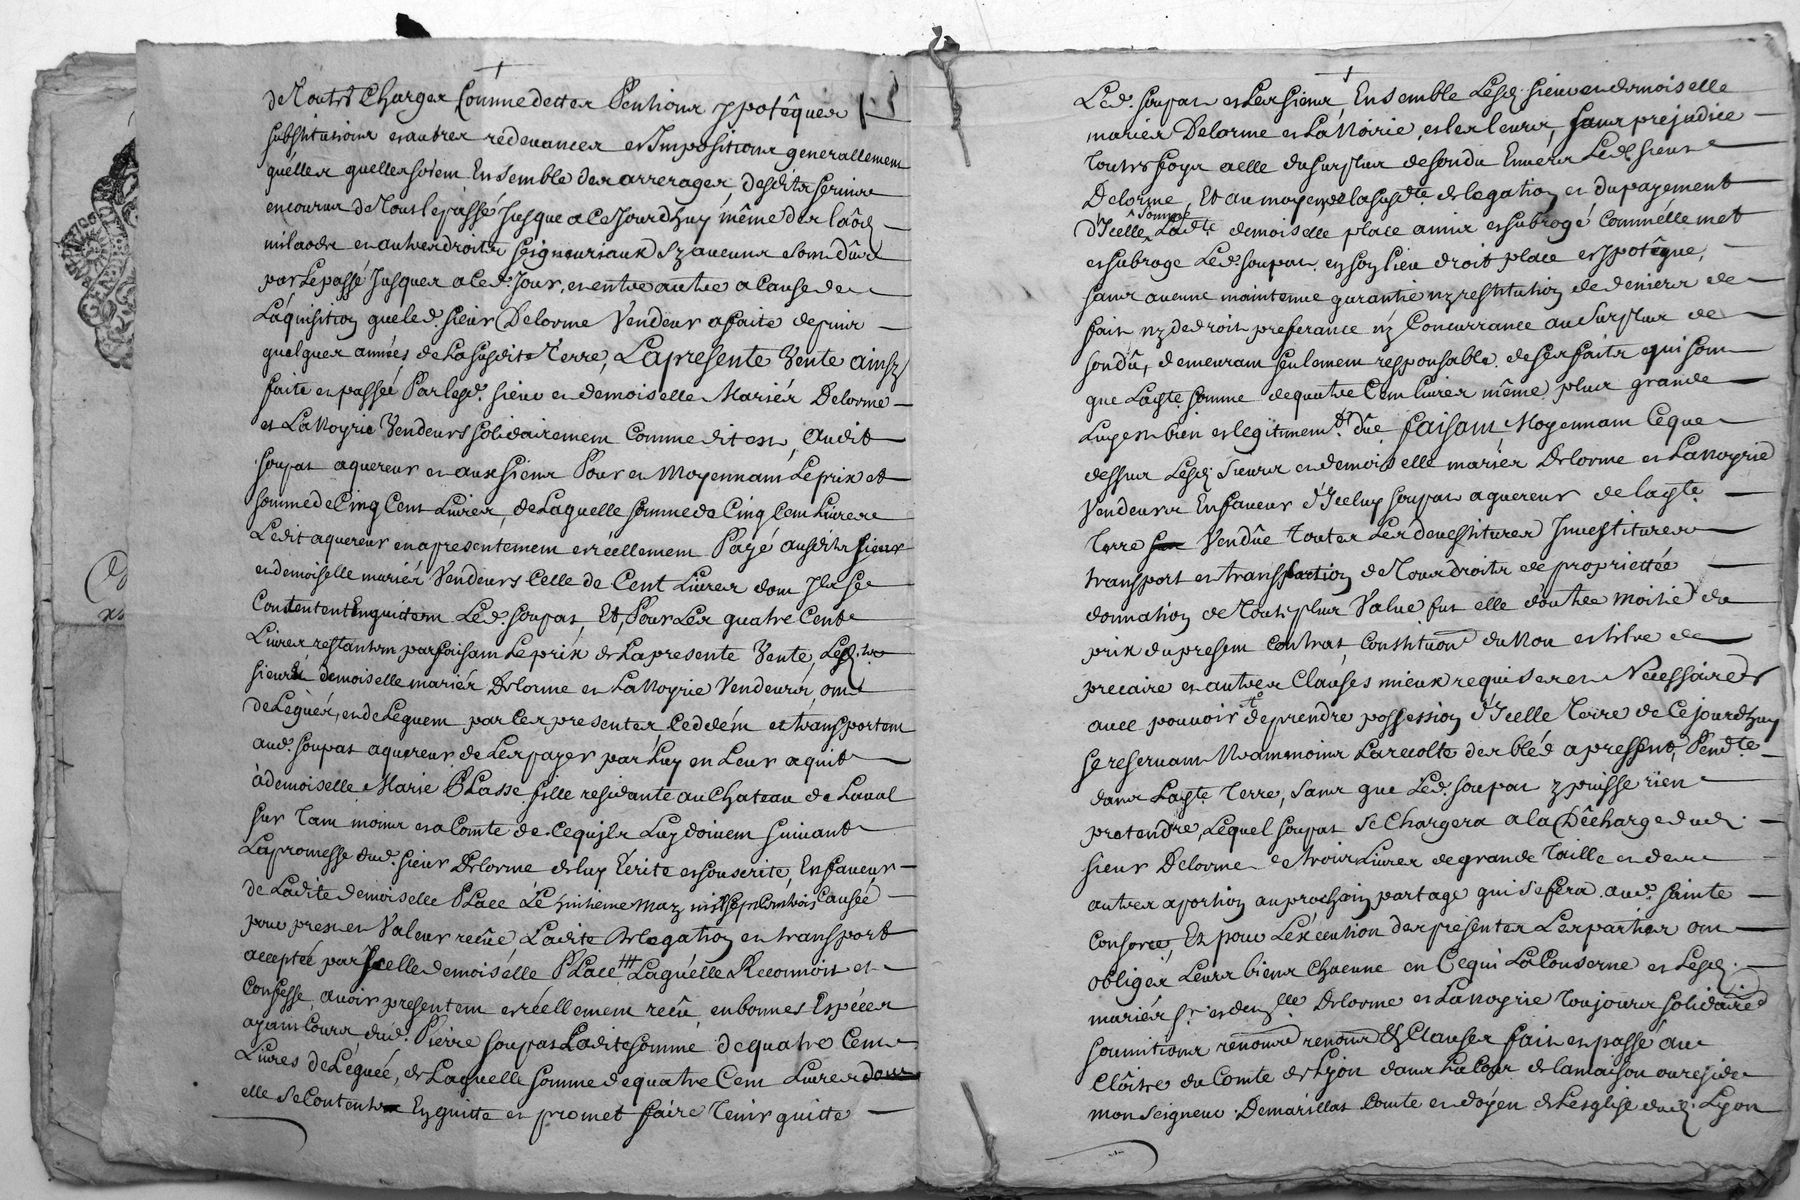 de Toutes Charges Comme dettes Pentions ypotêques
substitutions et autres redevances et Impositions generallement
quelles quelles soient Ensemble des arrerages, desdits servis
encourus de Tout le passé Jusque a Ce Jourdhuy même des laôds
milaods et autres droits seigneuriaux sy aucuns sont dûs
par Le passé Jusques a Led. Jour, et entre autre a Cause de
Láquisition que led. sieur Delorme Vendeur a faite depuis
quelques années de La susdite Terre, La presente Vente ainsy
faite et passée Par lesd. sieur et demoiselle Mariés Delorme
et La Noyrie Vendeurs solidairement Comme dit est, audit
soupat aquereur et aux siens Pour et Moyennant Le prix et
somme de Cinq Cent Livres, de Laquelle somme de Cinq Cent Livres
Ledit aquereur en a presentement et réellement Payé ausdits sieur
et demoiselle mariés Vendeurs Celle de Cent Livres dont Ils se
Contentent Enquittent Led. soupat, Et, Pour Les quatre Cent
Livres restantes parfaisant Le prix de La presente Vente, Lesd.
sieur et demoiselle mariés Delorme et La Noyrie Vendeurs, ont
deLégués, et deLéguent par Ces presentes Ceddént et transportent
aud. soupat aquereur de Les payer par Luy en Leur aquit
à demoiselle Marie PLasse fille residante au Chateau de Laval
sur Tant moins et a Comte de Ce quils Luy doivent suivant
La promesse dud. sieur Delorme de luy Ecrite et souscrite, En faveur
de Ladite demoiselle PLace Le huitieme may mil sept Cent trois Causée
pour prest et Valeur recûe Ladite delegation et transport
acceptée par Icelle demoisélle PLace Laquélle Reconnoit et
Confesse avoir presentem et réellement recû en bonnes Espéces
ayant Cours, dud. Pierre soupat Ladite somme de quatre Cent
Livres deLéguée, de Laquelle somme de quatre Cent Livres
elle se Contente Enquitte et promet faire Tenir quitte
Led. soupat et Les siens, Ensemble Lesd. sieur et demoiselle
mariés Delorme et La Noirie, et les leurs, sans prejudice
Toutes foys a elle du surplus de son du Envers Led. sieur
Delorme, Et au moyen de la susdte delegation et du payement
d'Icelle somme Ladte demoiselle place a mis et subrogé Comme elle met
et subroge Led. soupat en son lieu droit place et ypotêque,
sans aucune maintenue garantie ny restitution de deniers de
fait ny de droit preferance ny Concurrance au surplus de
son dû, demeurant seulement responsable de ses faits qui sont
que Ladte somme de quatre Cent Livres même plus grande
Luy est bien et legitimemt. dûe faisant Moyennant Ceque
dessus Lesd. sieurs et demoiselle mariés Delorme et La Noyrie
Vendeurs En faveur d'Iceluy soupat aquereur de ladte
Terre Vendûe toutes Les devestitures Investitures
transport et translaction de Tous droits de propriettée
donnation de Toute plus Value fut elle d'outre moitié du
prix du present Contrat, Constitution du Nom et titre de
precaire et autres Clauses mieux requises et Necessaires
avec pouvoir de prendre possession d'Icelle Terre de Cejourdhuy
se reservant Neammoins La recolte des bléd a present, Pendte
dans Ladte Terre, sans que Led. soupat y puisse rien
pretendre, Lequel soupat se Chargera a la Décharge dud.
sieur Delorme de trois Livres de grande Taille et de
autres a portion au prochain partage qui se fera aud. sainte
Consorce, Et pour Léxécution des presentes Les parties ont
obligés Leurs biens Chacune en Cequi La Conserne et Lesd.
mariés sr. et demlle. Delorme et La Noyrie Toujours solidaires
soumitions renonce renonce & Clauses fait et passé au
Clôitre du Comte de Lyon dans La Cour de la maison ou reside
mon seigneur Demarillat Comte et doyen de Lesglise dud. Lyon